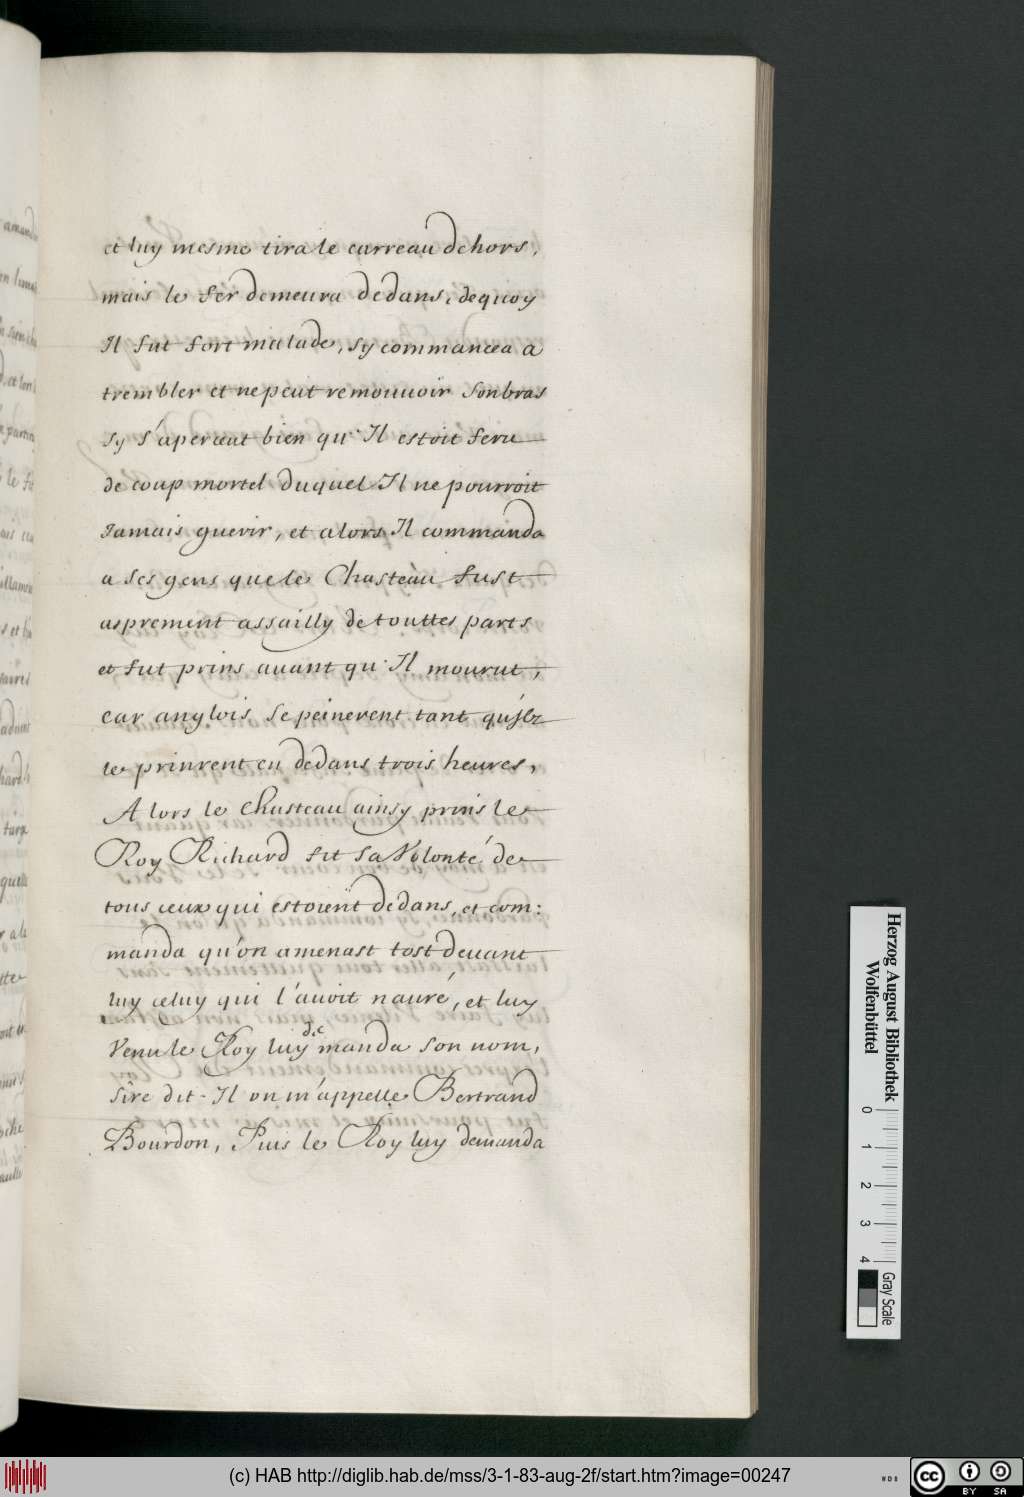 et luy mesme tira le carreau dehors,
mais le fer demeura dedans, dequoy
Il fut fort malade, sy commancea a
trembler et ne peut remouuoir son bras
sy s'aperceut bien qu'Il estoit feru
de coup mortel duquel Il ne pourroit
Jamais guerir, et alors Il commanda
a ses gens que le Chasteau fust
asprement assailly de touttes parts
et fut prins auant qu'Il mourut,
car anglois se peinerent tant qu'jlz
le prinrent en dedans trois heures,
Alors le Chasteau ainsy prins le
Roy Richard fit sa Volonté de
tous ceux qui estoient dedans, et com:
manda qu'on amenast tost deuant
luy celuy qui l'auoit nauré, et luy
de
Venu le Roy luy manda son nom,
Sire dit-Il on m'appelle Bertrand
Bourdon, Puis le Roy luy demanda
Herzog August Bibliothek
Wolfenbüttel
0 1 2 3 4
Gray Scale
(c) HAB http://diglib.hab.de/mss/3-1-83-aug-2f/start.htm?image=00247
WDB
cc
BY SA